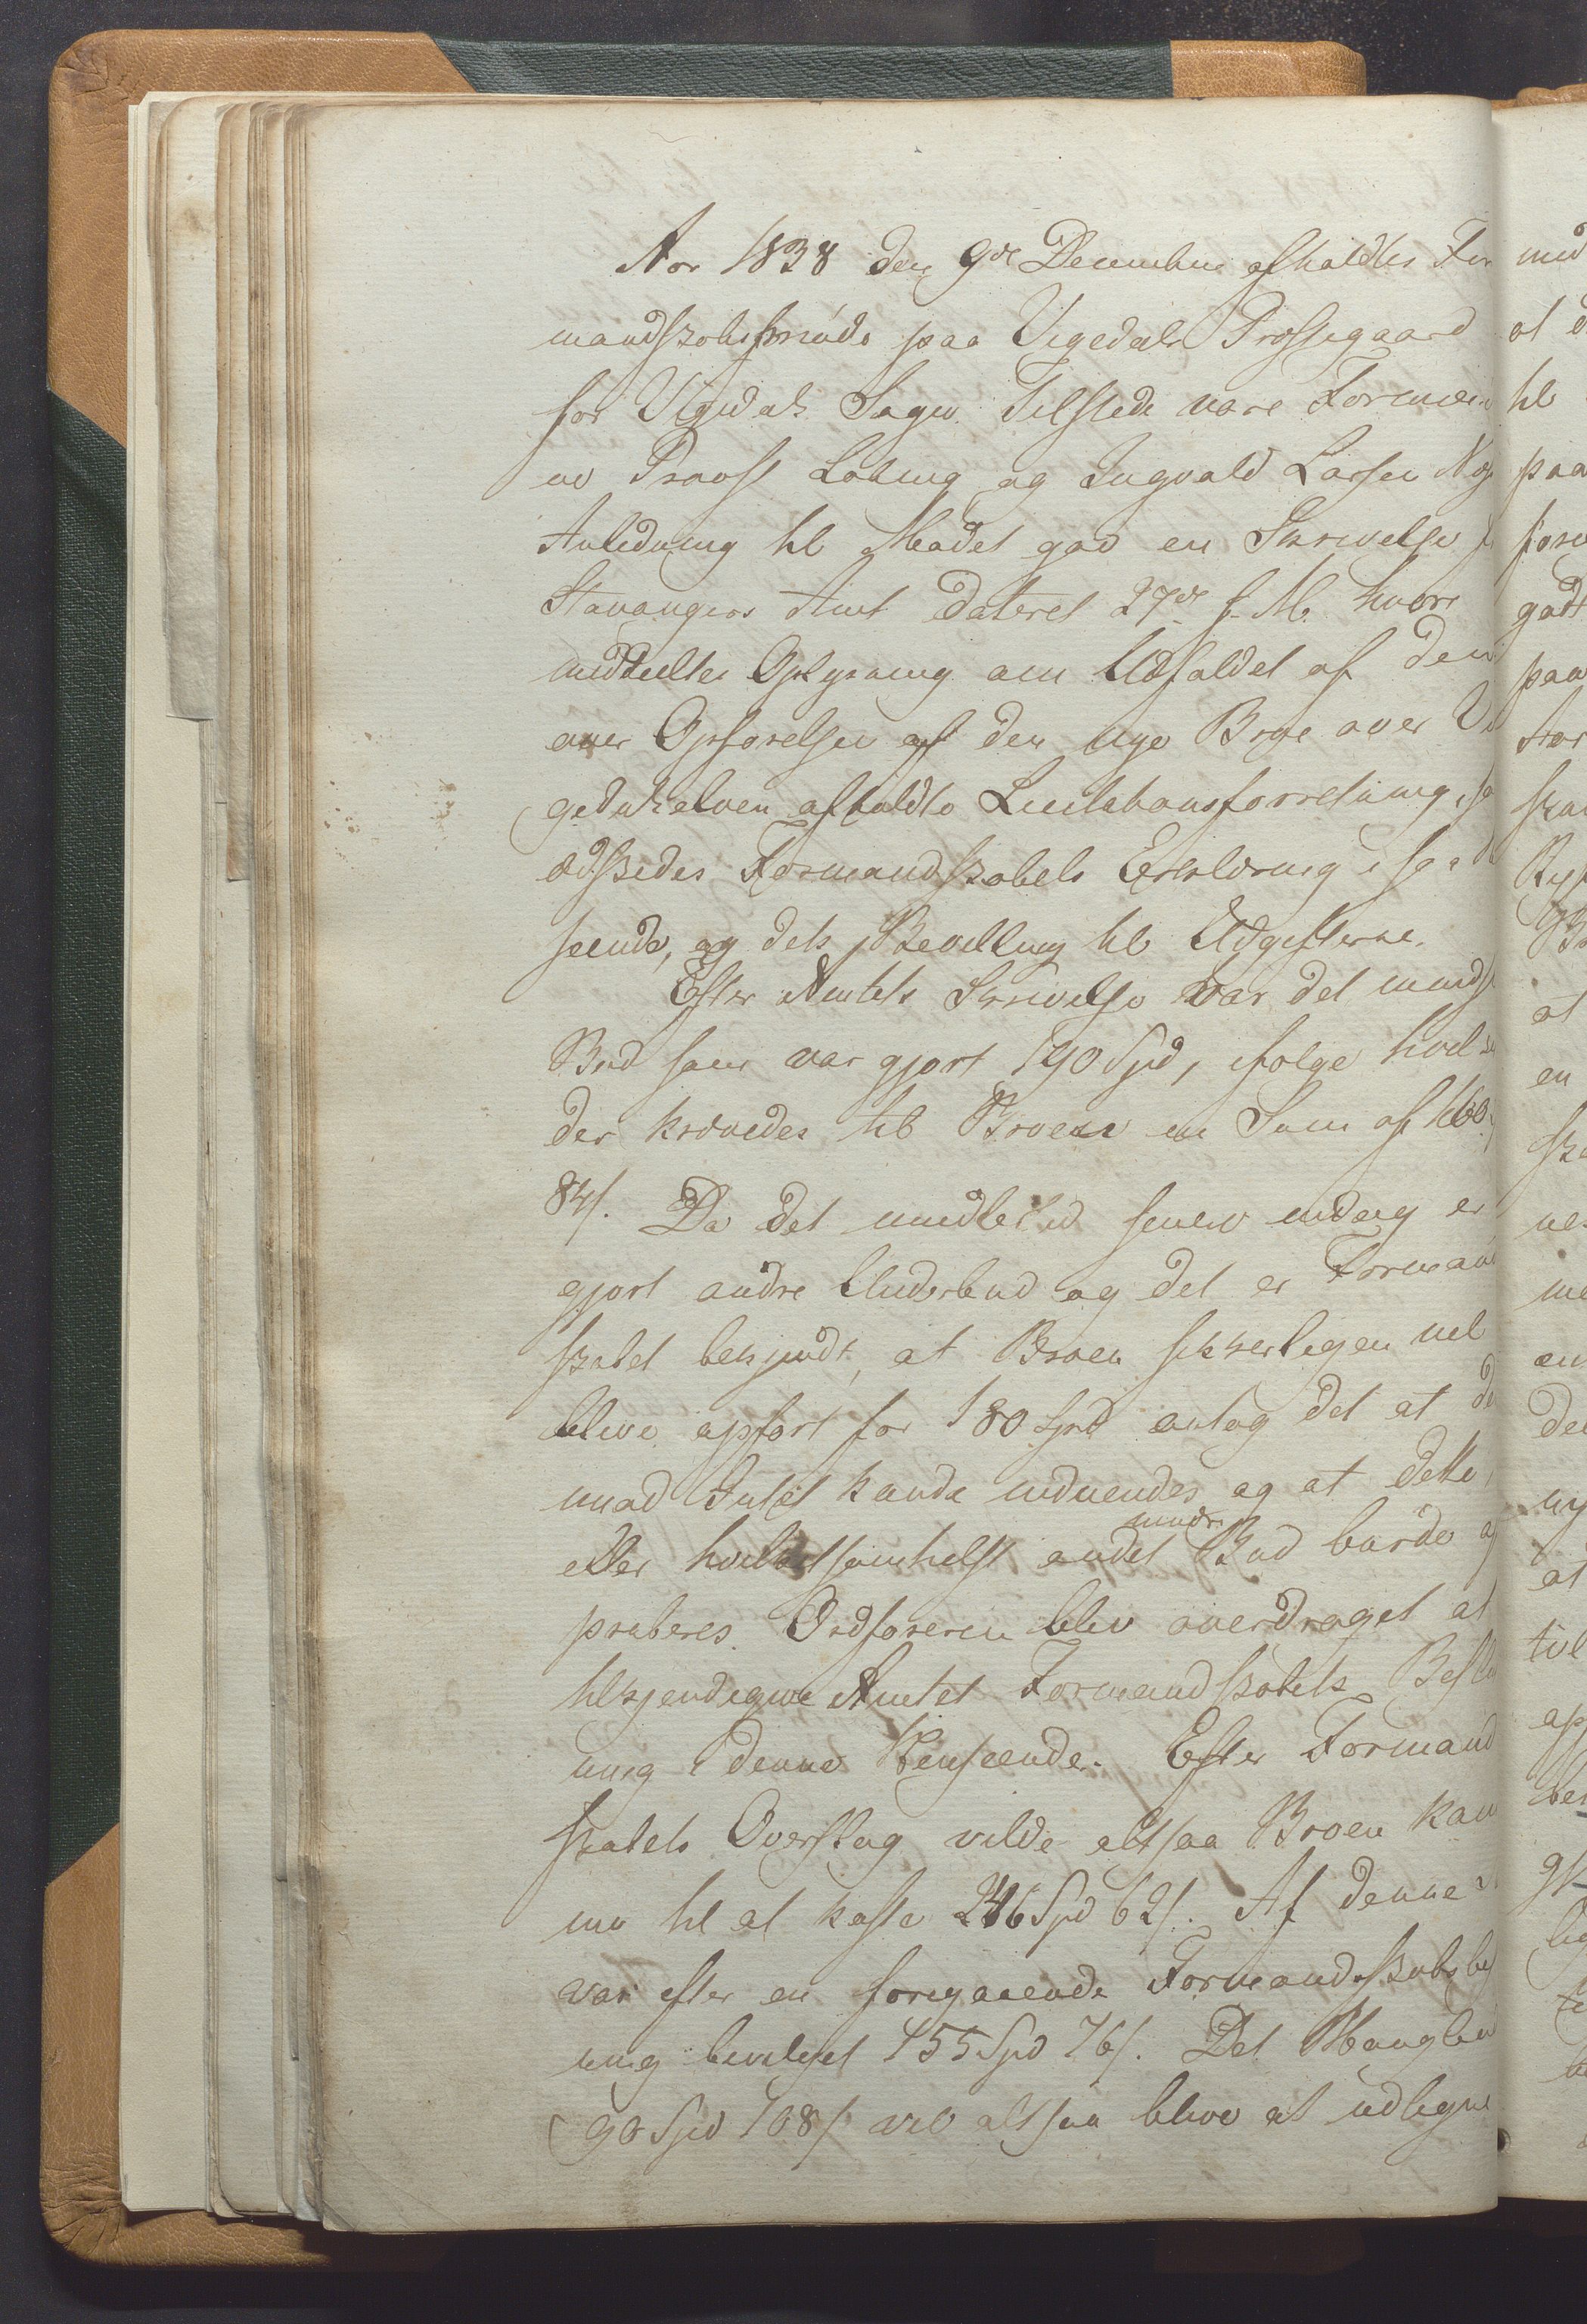 Aar 1838 den 9de December afholdtes For
mandskabsmøde paa Vigedals Præstegaard
for Vigedals Sogn. Tilstede vare Formæn
ne Provst Løbing og Ingvald Larsen
Anledning til Mødet gav en Skrivelse f
Stavangers Amt dateret 27de f. M. hvori
meddeeltes Oplysning om Udfaldet af den
over Opførelsen af den nye Broe over Vi
gedalselven afholdte Licitationsforretning, sa
ædskedes Formandskabets Erklæring i saa
seende, og dets Bevilling til Udgifterne.
Efter Amtets Skrivelse var det mindst
Bud som var gjort 190 Spd, ifølge hvilke
der krævedes til Broen en Sum af
84 s. Da det imidlertid senere endog er
gjort andre Underbud og det er Formand
skabet bekjendt, at Broen sikkerligen vil
blive opført for 180 Spd antog det at de
mod Intet kunde indvendes og at dette
mindre
eller hvilketsomhelst andet Bud burde ap
proberes. Ordføreren blev overdraget at
tilkjendegive Amtet Formandskabets Beslut
ning i denne Henseende. Efter Formand
skabets Overslag vilde altsaa Broen kom
me til at koste 246 Spd 62 s. Af denne
var efter en foregaaende Formandskabsbes
ning bevilget 155 Spd 76 s. Det Manglen
90 Spd 108 s vil altsaa blive at udligne